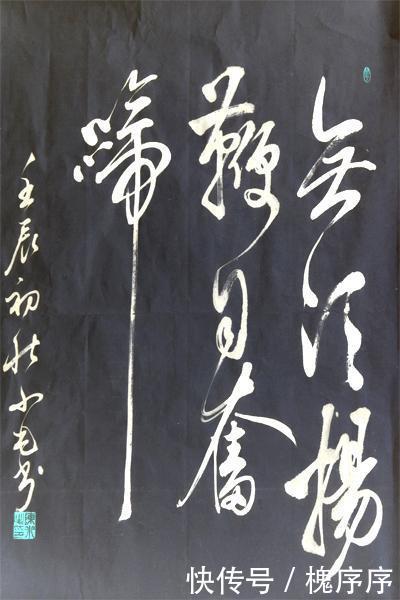 無須揚
鞭自奮
蹄
壬辰初秋小毛书
快传号 / 槐序序